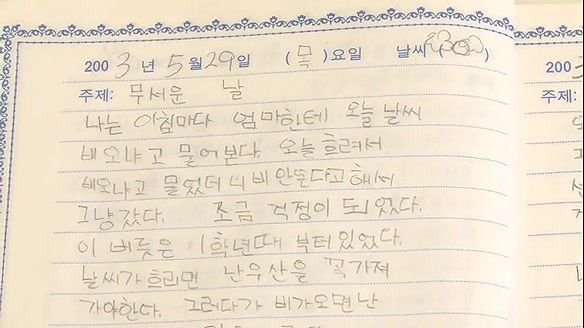 2003년 5월 29일 (목)요일 날씨( )
주제: 무서운 날
나는 아침마다 엄마한테 오늘 날씨
비오냐고 물어본다. 오늘 흐려서
비오냐고 물었더니 비 안온다고해서
그냥갔다. 조금 걱정이 되었다.
이 버릇은 1학년때 부터있었다.
날씨가 흐리면 난우산을 꼭가져
가야한다. 그러다가 비가오면 난
200
주제: